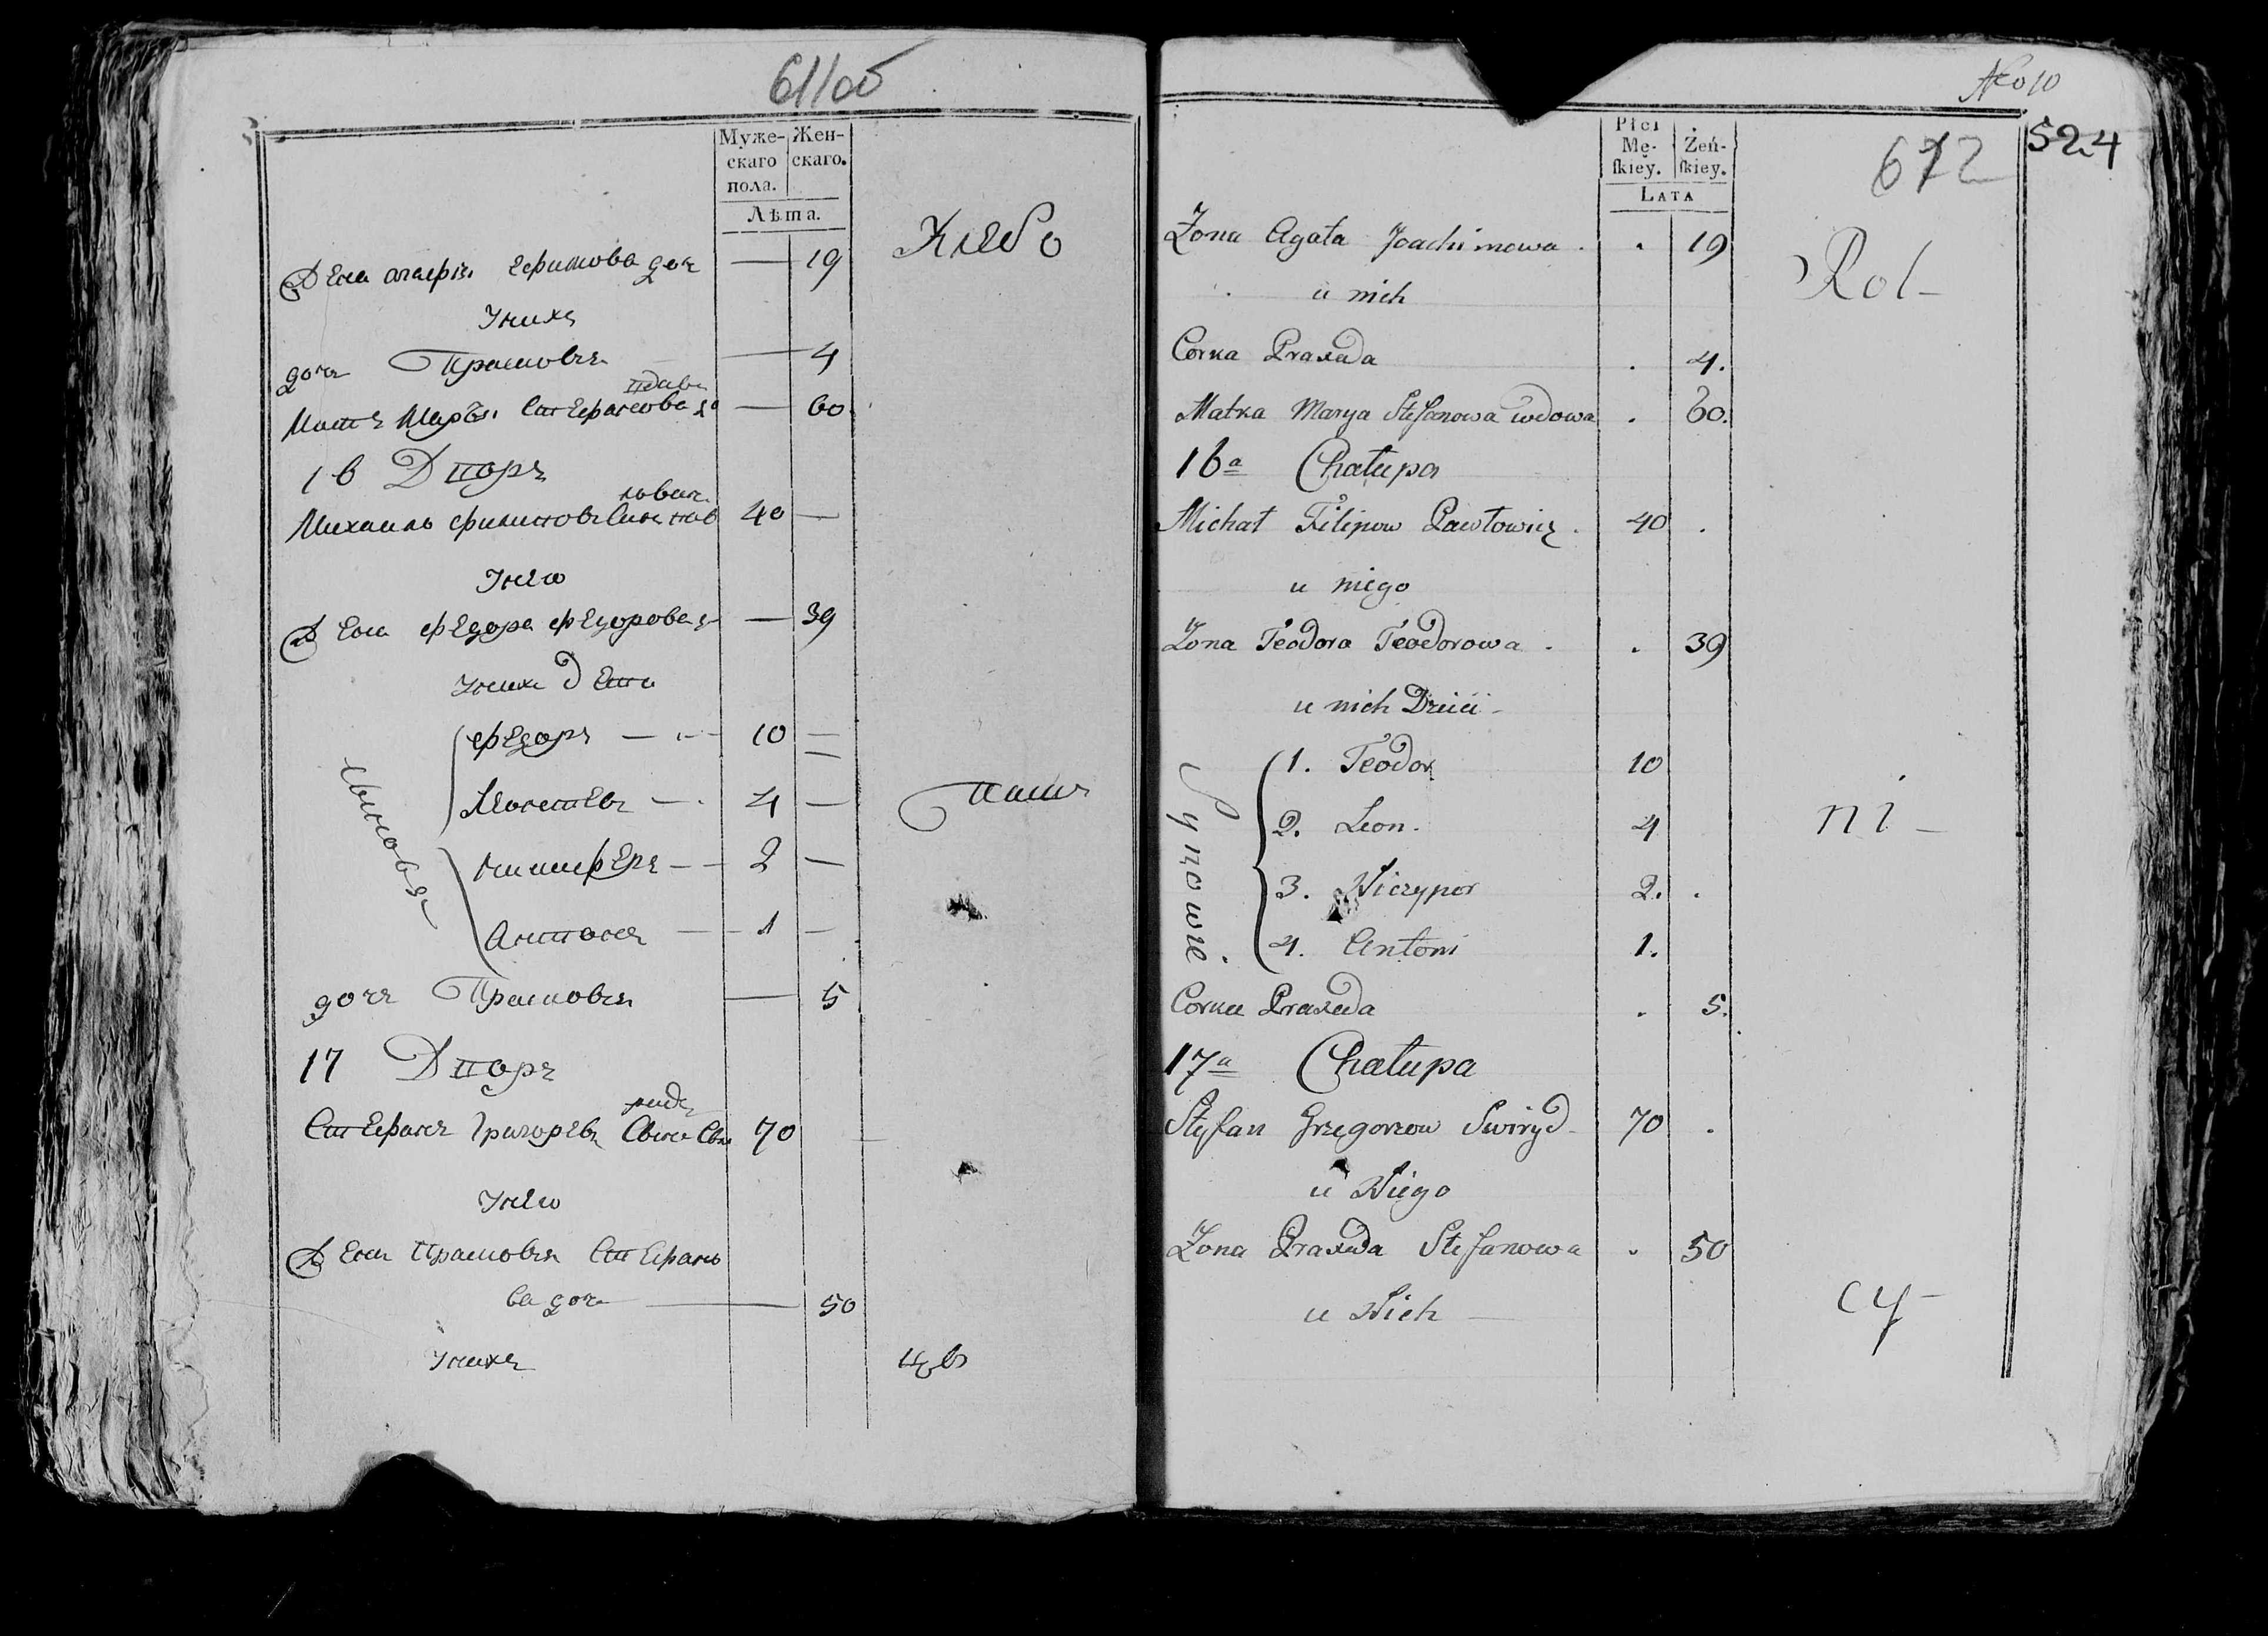 61/об
Муже-
скаго
пола.
Жен-
скаго.
Лѣта.
Жена Агафія Ефимова доч 19
Унихъ
дочъ Прасковья 4
вдава
Мать Марья Стефанова до 60
16 Дворъ
Михаилъ Филиповъ 40
Унего
Жена Федора Федорова д 39
Унихъ Дети
Сыновья
Федоръ 10
Леонтей 4
Никиферъ 2
Антонъ 1
дочъ Прасковья 5
17 Дворъ
Стефанъ Григоревъ 70
Унего
Жена Прасковья Стефано
ва дочъ 50
Унихъ
Хлебо
паш
цы
No 10
524
672
Płci
Mę-
skiey.
Żeń-
skiey.
LATA
Żona Agata Joachimowa . . 19
u nich
Corka Praxeda . 4.
Matka Marya Stefanowa wdowa . 60.
16a Chałupa
Michał Filipow Pawłowicz . 40 .
u niego
Zona Teodora Teodorowa . . 39
u nich Dzieci -
Synowie.
1. Teodor 10
2. Leon. 4
3. Niczypor 2. .
4. Antoni 1.
Corka Praxeda . 5.
17a Chałupa
Stefan Grzegorzow Swiryd 70 .
u Niego
Zona Praxeda Stefanowa . 50
u Nich
Rol-
ni-
cy-